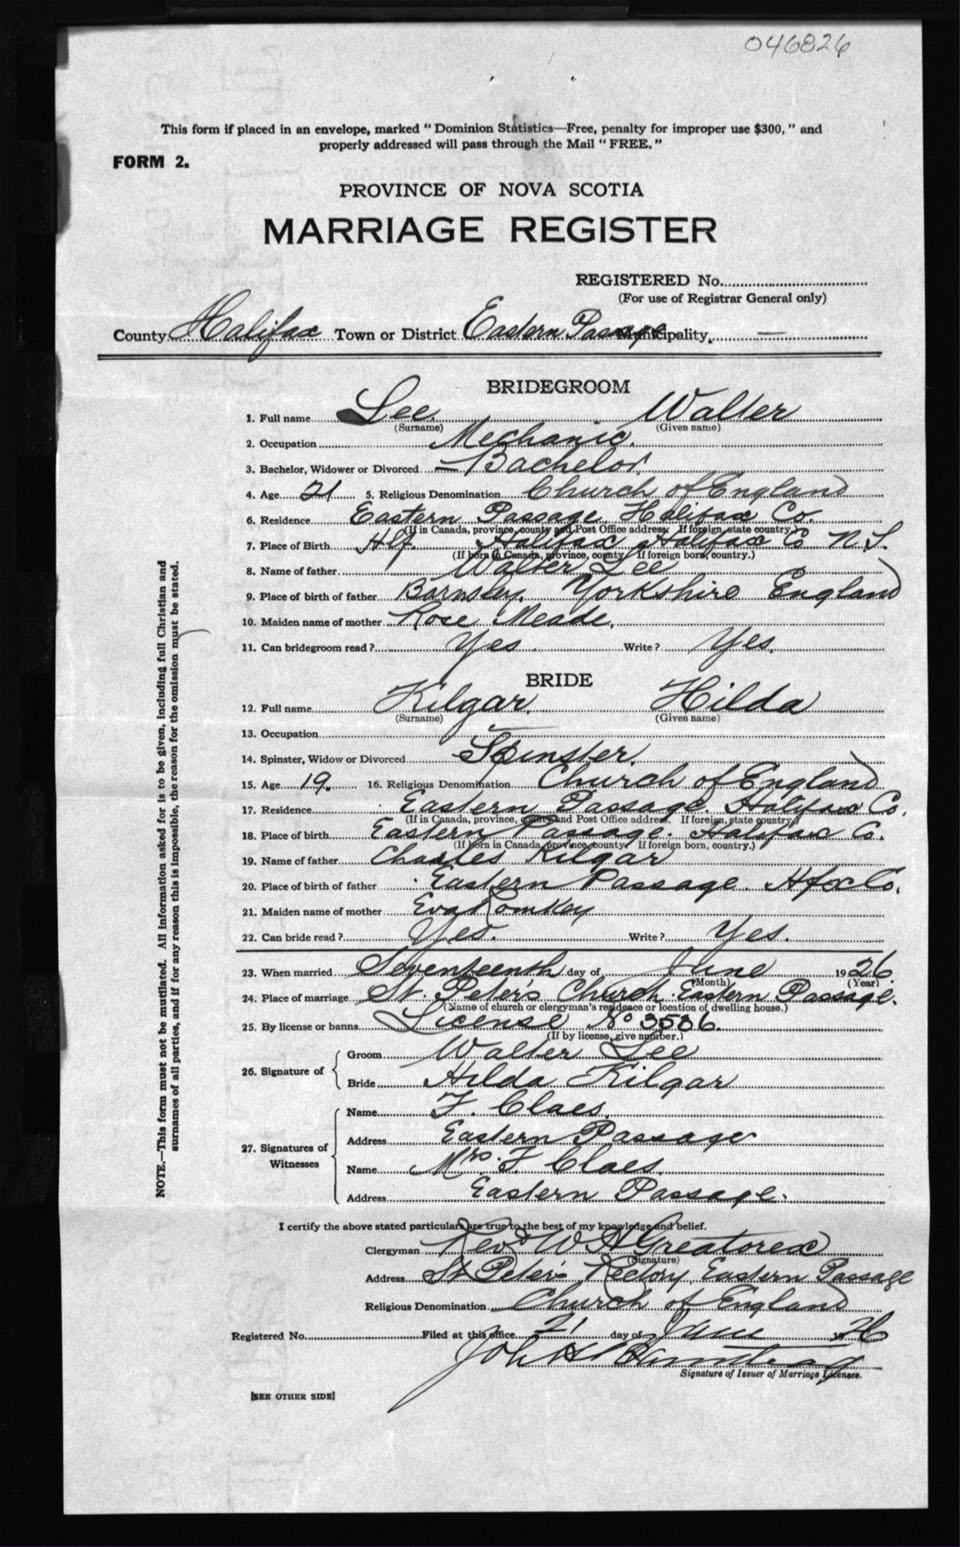 046826
This form if placed in an envelope, marked "Dominion Statistics—Free, penalty for improper use $300," and
properly addressed will pass through the Mail "FREE."
FORM 2.
PROVINCE OF NOVA SCOTIA
MARRIAGE REGISTER
REGISTERED No.
(For use of Registrar General only)
County Halifax Town or District Eastern Passage Municipality, —
BRIDEGROOM
1. Full name Lee. Walter
(Surname) (Given name)
2. Occupation Mechanic.
3. Bachelor, Widower or Divorced — Bachelor.
4. Age 21 5. Religious Denomination Church of England
6. Residence Eastern Passage Halifax Co.
(If in Canada, province, county and Post Office address. If foreign, state country.)
7. Place of Birth Hfx. Halifax Halifax Co N.S.
(If born in Canada, province, county. If foreign born, country.)
8. Name of father Walter Lee
9. Place of birth of father Barnsley. Yorkshire England
10. Maiden name of mother Rose Meade.
11. Can bridegroom read? Yes Write? Yes.
BRIDE
12. Full name Kilgar. Hilda
(Surname) (Given name)
13. Occupation —
14. Spinster, Widow or Divorced Spinster.
15. Age 19. 16. Religious Denomination Church of England
17. Residence Eastern Passage. Halifax Co.
(If in Canada, province, county and Post Office address. If foreign, state country.)
18. Place of birth Eastern Passage. Halifax Co.
(If born in Canada, province, county. If foreign born, country.)
19. Name of father Charles Kilgar
20. Place of birth of father Eastern Passage. Hfx Co.
21. Maiden name of mother Eva Romkey
22. Can bride read? Yes. Write? Yes.
23. When married Seventeenth day of June 1926
(Month) (Year)
24. Place of marriage St. Peter's Church Eastern Passage.
(Name of church or clergyman's residence or location of dwelling house.)
25. By license or banns License No 3536.
(If by license, give number.)
26. Signature of
Groom Walter Lee
Bride Hilda Kilgar
27. Signatures of Witnesses
Name F. Claes.
Address Eastern Passage
Name Mrs. F Claes.
Address Eastern Passage.
I certify the above stated particulars are true to the best of my knowledge and belief.
Clergyman Revd W H Greatorex
(Signature)
Address St Peter's Rectory, Eastern Passage
Religious Denomination Church of England
Registered No. Filed at this office 21 day of June 1926
John H
Signature of Issuer of Marriage Licenses.
[SEE OTHER SIDE]
NOTE.—This form must not be mutilated. All information asked for is to be given, including full Christian and
surnames of all parties, and if for any reason this is impossible, the reason for the omission must be stated.